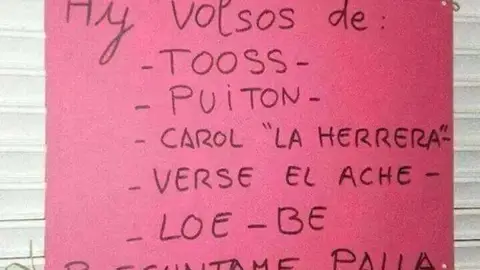 Hy volsos de:
- TOOSS -
- PUITON -
- CAROL "LA HERRERA" -
- VERSE EL ACHE -
- LOE - BE
PREGUNTAME PALLA